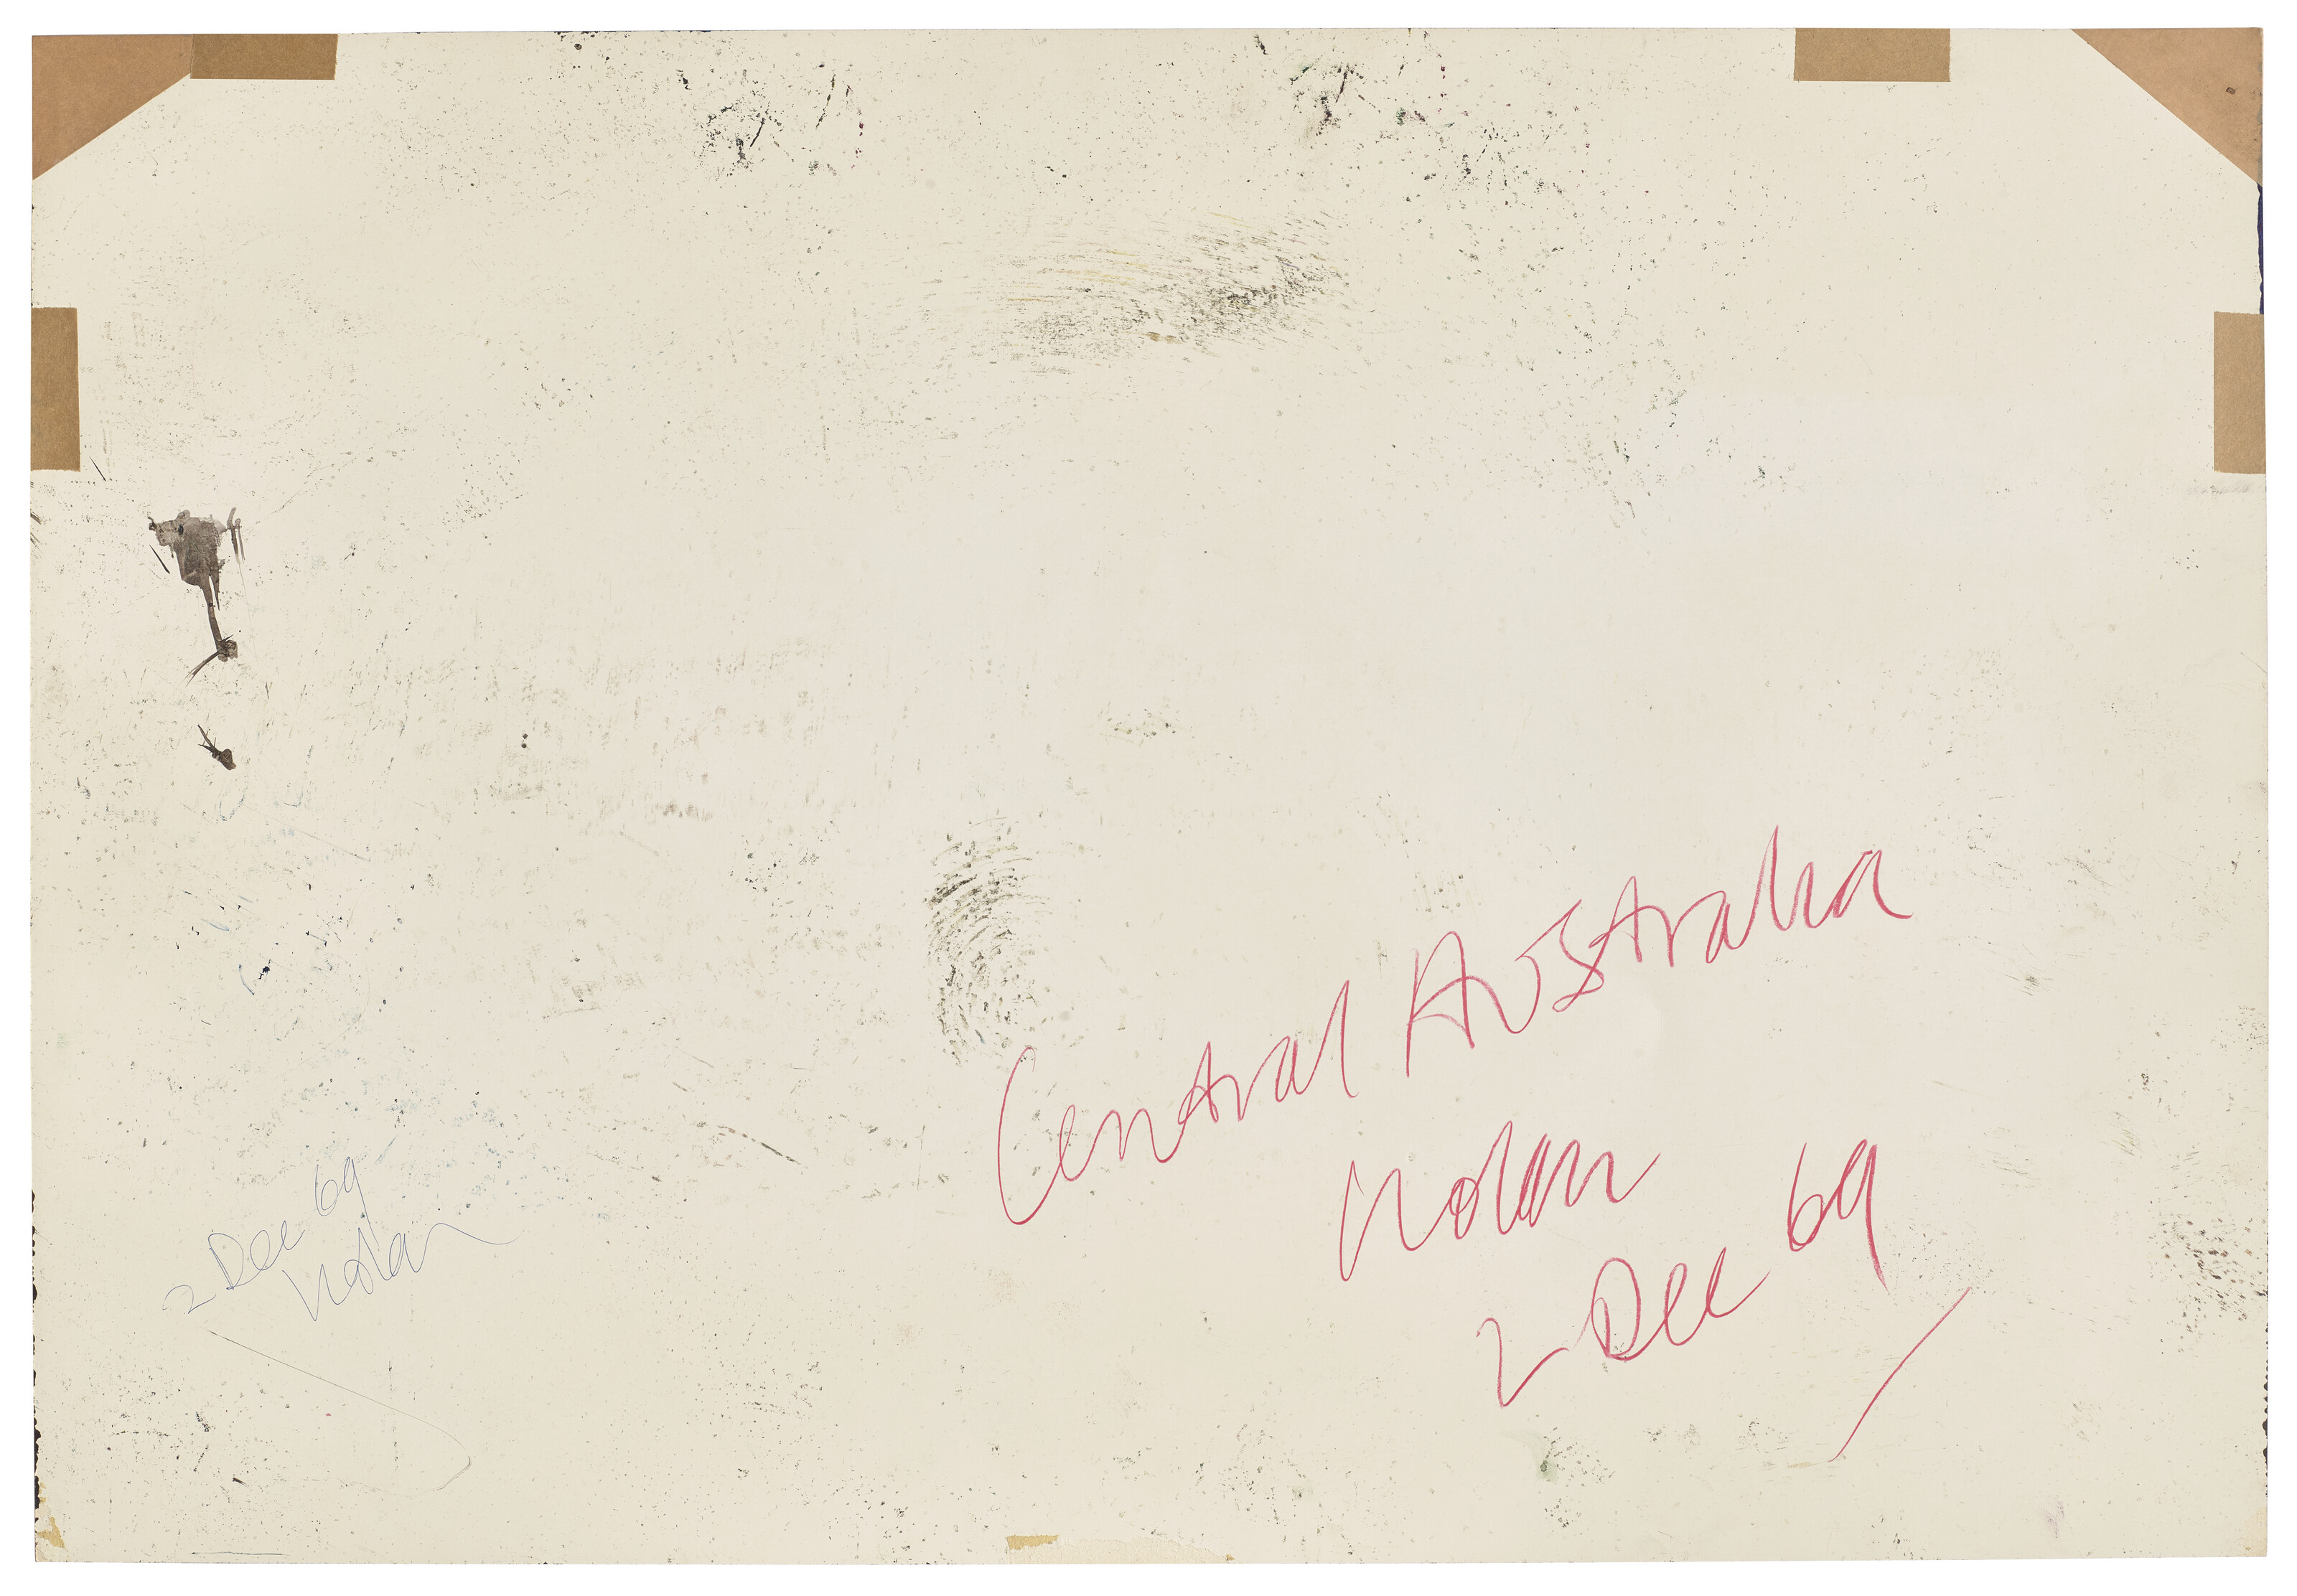 Central Australia
Nolan
2 Dec 69
2 Dec 69
Nolan